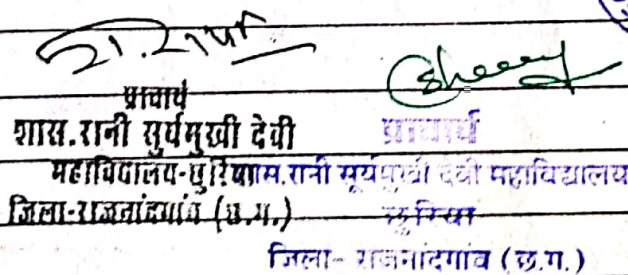 प्राचार्य
शास.रानी सुर्यमुखी देवी
महाविद्यालय-छुरिया
जिला-राजनांदगांव (छ.ग.)
प्राचार्य
शास.रानी सूर्यमुखी देवी महाविद्यालय
छुरिया
जिला- राजनांदगांव (छ.ग.)